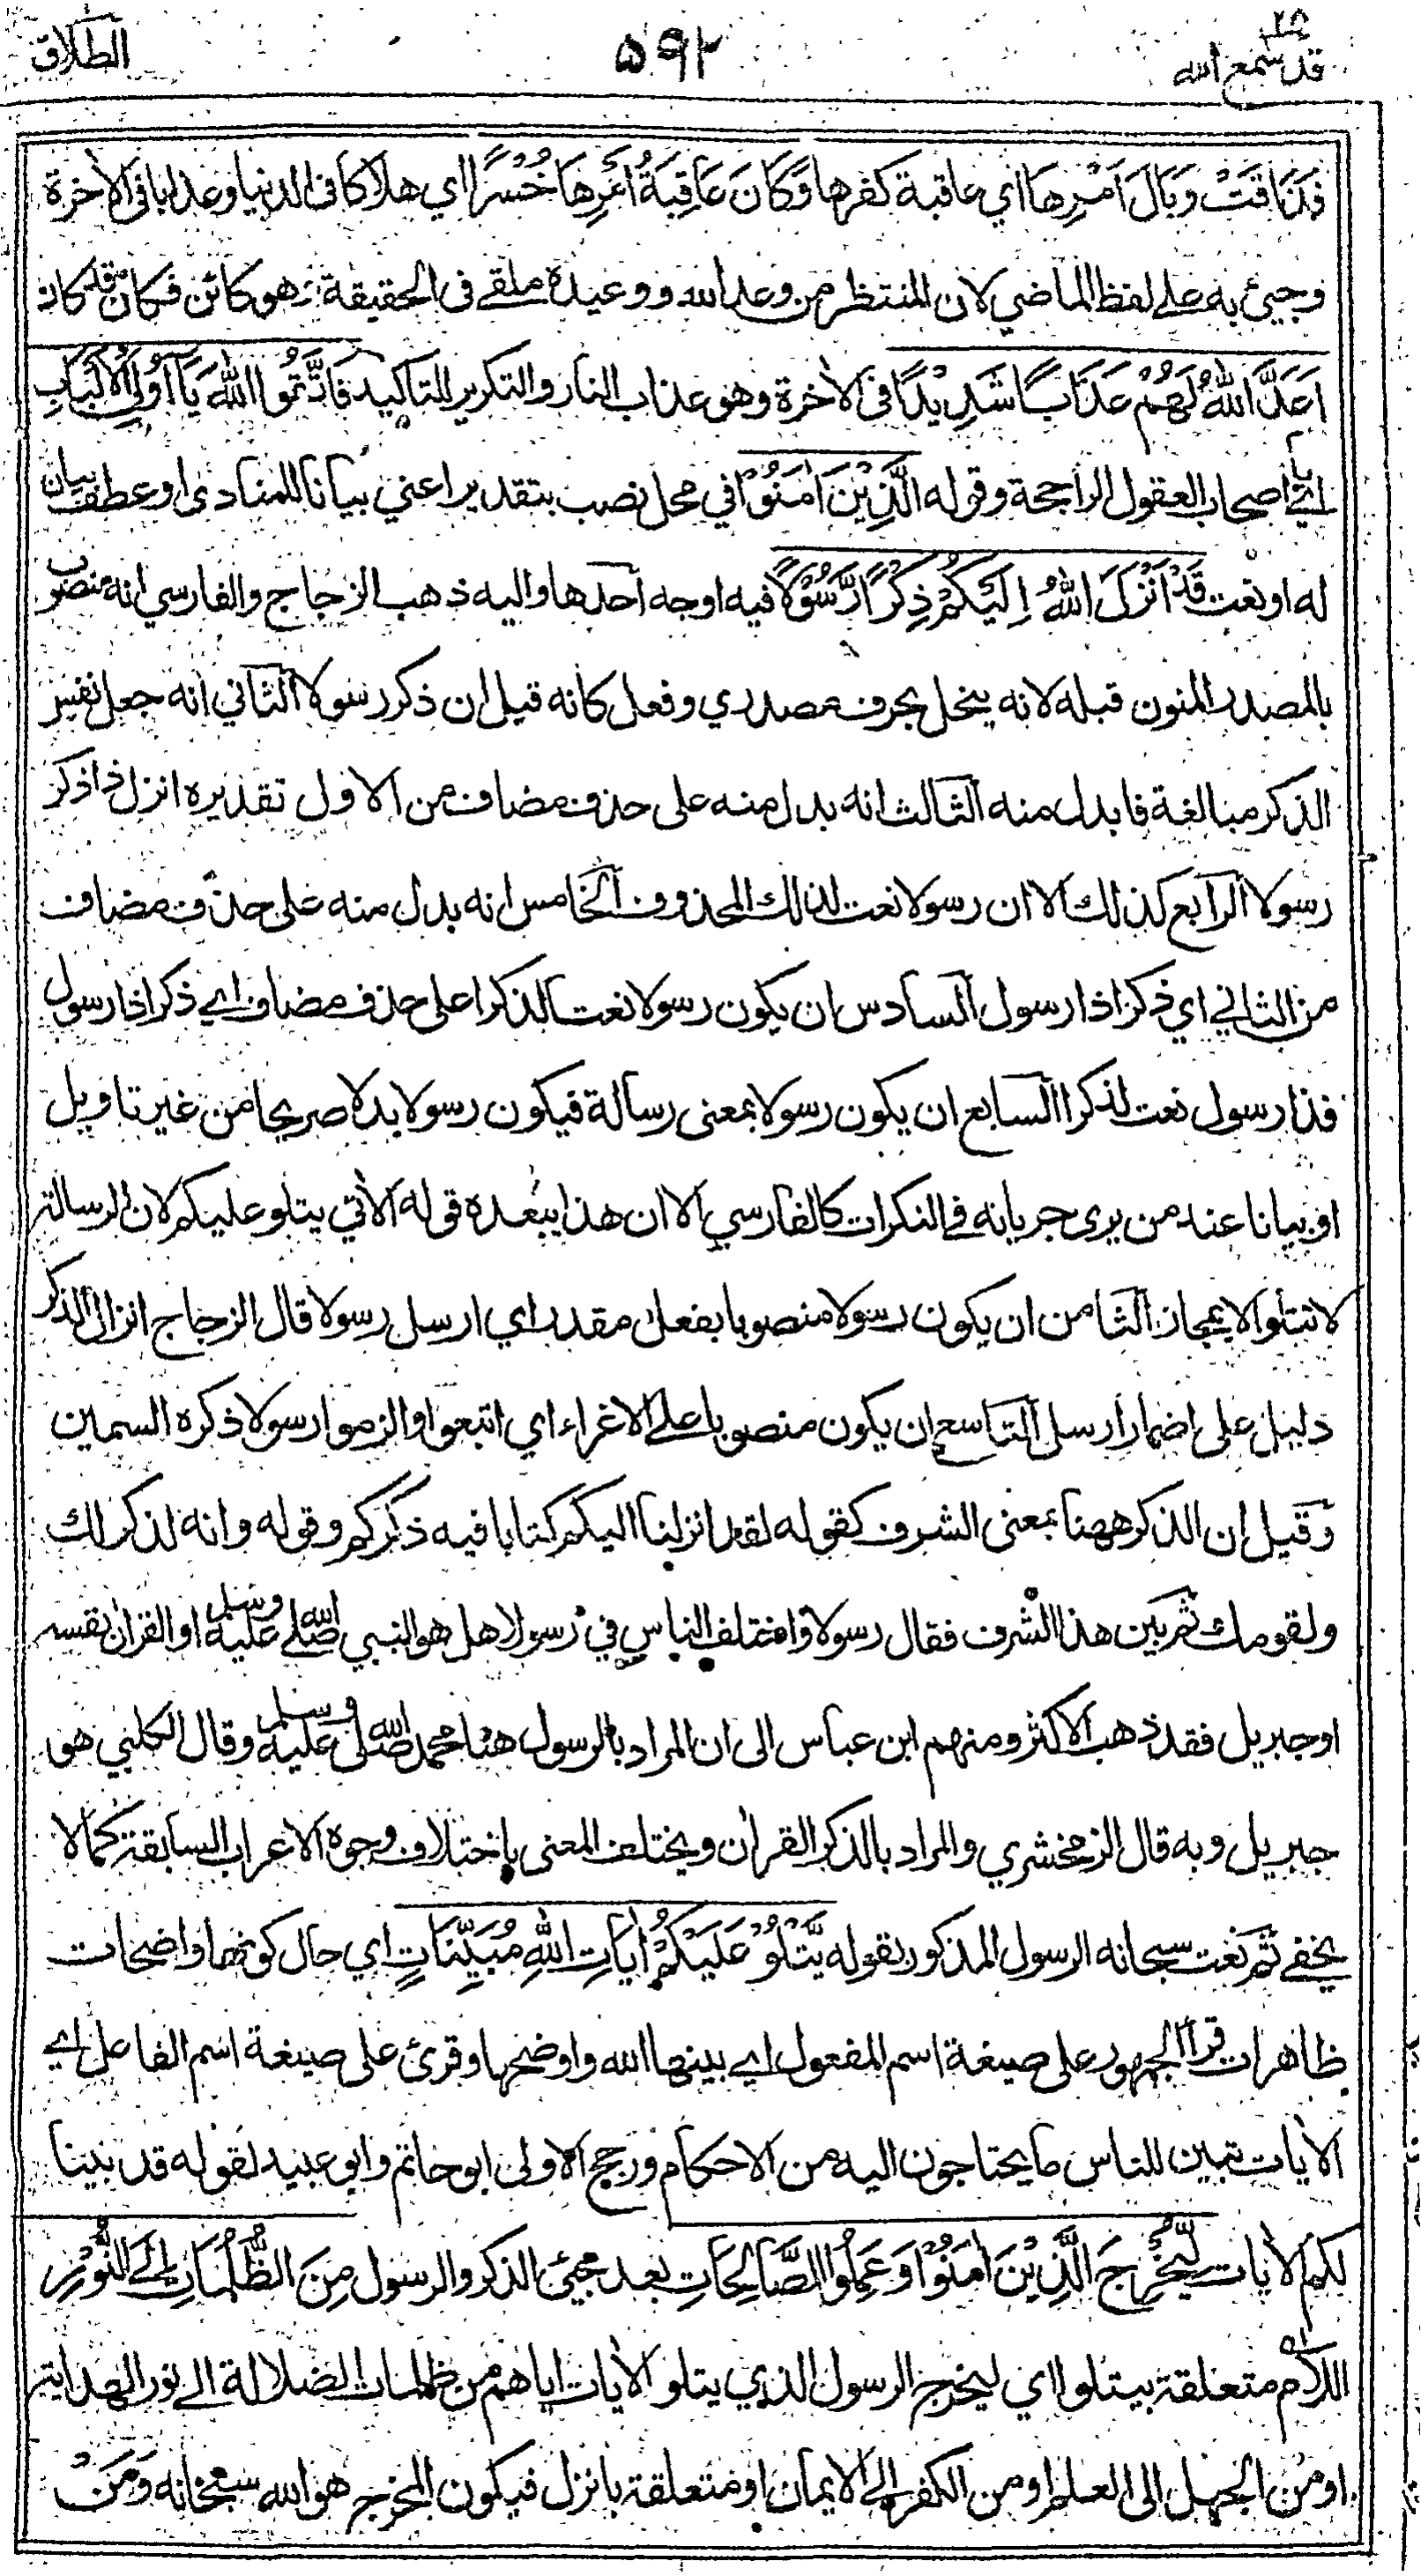 قد سمع الله ٢٨
٥٩٢
الطلاق
فَذَاقَتْ وَبَالَ اَمْرِهَا اي عاقبة كفرها وَكَانَ عَاقِبَةُ اَمْرِهَا خُسْرًا اي هلاكا فى الدنيا وعذابا فى الاٰخرة
وجيئ به على لفظ الماضي لان المنتظر من وعد الله ووعيده ملقے فى الحقيقة وهو كائن فكان قد كان
اَعَدَّ اللّٰهُ لَهُمْ عَذَابًا شَدِيْدًا فى الاٰخرة وهو عذاب النار والتكرير للتاكيد فَاتَّقُوا اللّٰهَ يَا اُولِي الْاَلْبَابِ
اي يا اصحاب العقول الراجحة وقوله الَّذِيْنَ اٰمَنُوْا في محل نصب بتقدير اعني بيانا للمنادى او عطف بيان
له او نعت قَدْ اَنْزَلَ اللّٰهُ اِلَيْكُمْ ذِكْرًا رَّسُوْلًا فيه اوجه احدها واليه ذهب الزجاج والفارسي انه منصوب
بالمصدر المنون قبله لانه ينحل بحرف مصدري وفعل كانه قيل ان ذكر رسولا الثاني انه جعل نفس
الذكر مبالغة فابدل منه الثالث انه بدل منه على حذف مضاف من الاول تقديره انزل ذا ذكر
رسولا الرابع كذلك الا ان رسولا نعت لذلك المحذوف الخامس انه بدل منه على حذف مضاف
من الثاني اي ذكرا ذا رسول السادس ان يكون رسولا نعتا لذكرا على حذف مضاف اي ذكرا ذا رسول
فذا رسول نعت لذكرا السابع ان يكون رسولا بمعنى رسالة فيكون رسولا بدلا صريحا من غير تاويل
او بيانا عند من يرى جريانه فى النكرات كالفارسي الا ان هذا يبعده قوله الاٰتي يتلو عليكم لان الرسالة
لا تتلو الا بمجاز الثامن ان يكون رسولا منصوبا بفعل مقدر اي ارسل رسولا قال الزجاج انزال الذكر
دليل على اضمار ارسل التاسع ان يكون منصوبا على الاغراء اي اتبعوا والزموا رسولا ذكره السمين
وقيل ان الذكر ههنا بمعنى الشرف كقوله لقد انزلنا اليكم كتابا فيه ذكركم وقوله وانه لذكر لك
ولقومك ثم بين هذا الشرف فقال رسولا واختلف الناس في رسولا هل هو النبي صلى الله عليه وسلم او القراٰن نفسه
او جبريل فقد ذهب الاكثر ومنهم ابن عباس الى ان المراد بالرسول هنا محمد صلى الله عليه وسلم وقال الكلبي هو
جبريل وبه قال الزمخشري والمراد بالذكر القراٰن ويختلف المعنى باختلاف وجوه الاعراب السابقة كما لا
يخفى ثم نعت سبحانه الرسول المذكور بقوله يَّتْلُوْ عَلَيْكُمْ اٰيَاتِ اللّٰهِ مُبَيِّنَاتٍ اي حال كونها واضحات
ظاهرات قرأ الجمهور على صيغة اسم المفعول اي بينها الله واوضحها وقرئ على صيغة اسم الفاعل اي
الاٰيات تبين للناس ما يحتاجون اليه من الاحكام ورجح الاولى ابو حاتم وابو عبيد لقوله قد بينا
لكم الاٰيات لِّيُخْرِجَ الَّذِيْنَ اٰمَنُوْا وَعَمِلُوا الصَّالِحَاتِ بعد مجيئ الذكر والرسول مِنَ الظُّلُمَاتِ اِلَى النُّوْرِ
اللام متعلقة بيتلو اي ليخرج الرسول الذي يتلو الاٰيات اياهم من ظلمات الضلالة الى نور الهداية
او من الجهل الى العلم او من الكفر الى الايمان او متعلقة بانزل فيكون المخرج هو الله سبحانه وَمَنْ